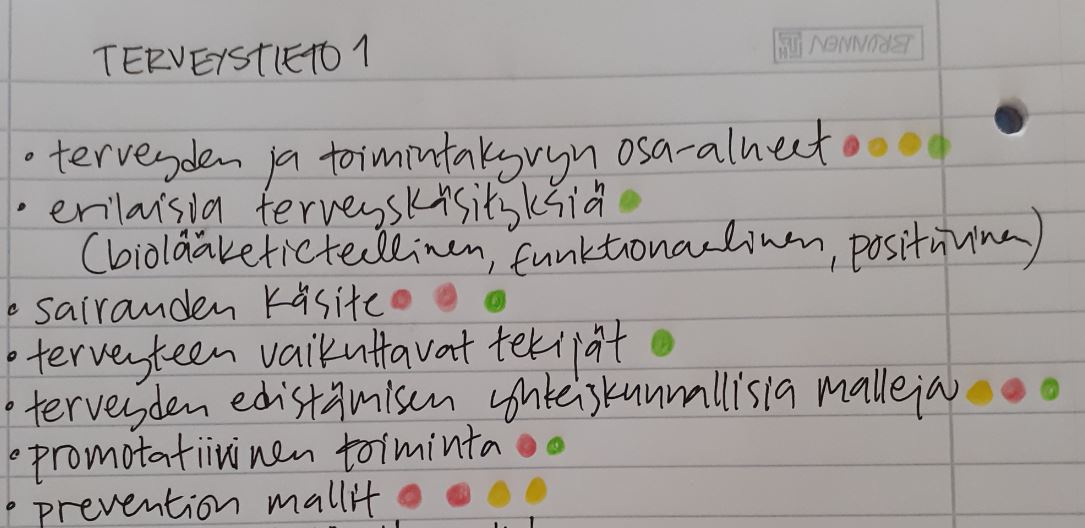 TERVEYSTIETO 1
BRUNNEN
• terveyden ja toimintakyvyn osa-alueet
• erilaisia terveyskäsityksiä
(biolääketieteellinen, funktionaalinen, positiivinen)
• sairauden käsite
• terveyteen vaikuttavat tekijät
• terveyden edistämisen yhteiskunnallisia malleja
• promotatiivinen toiminta
• prevention mallit